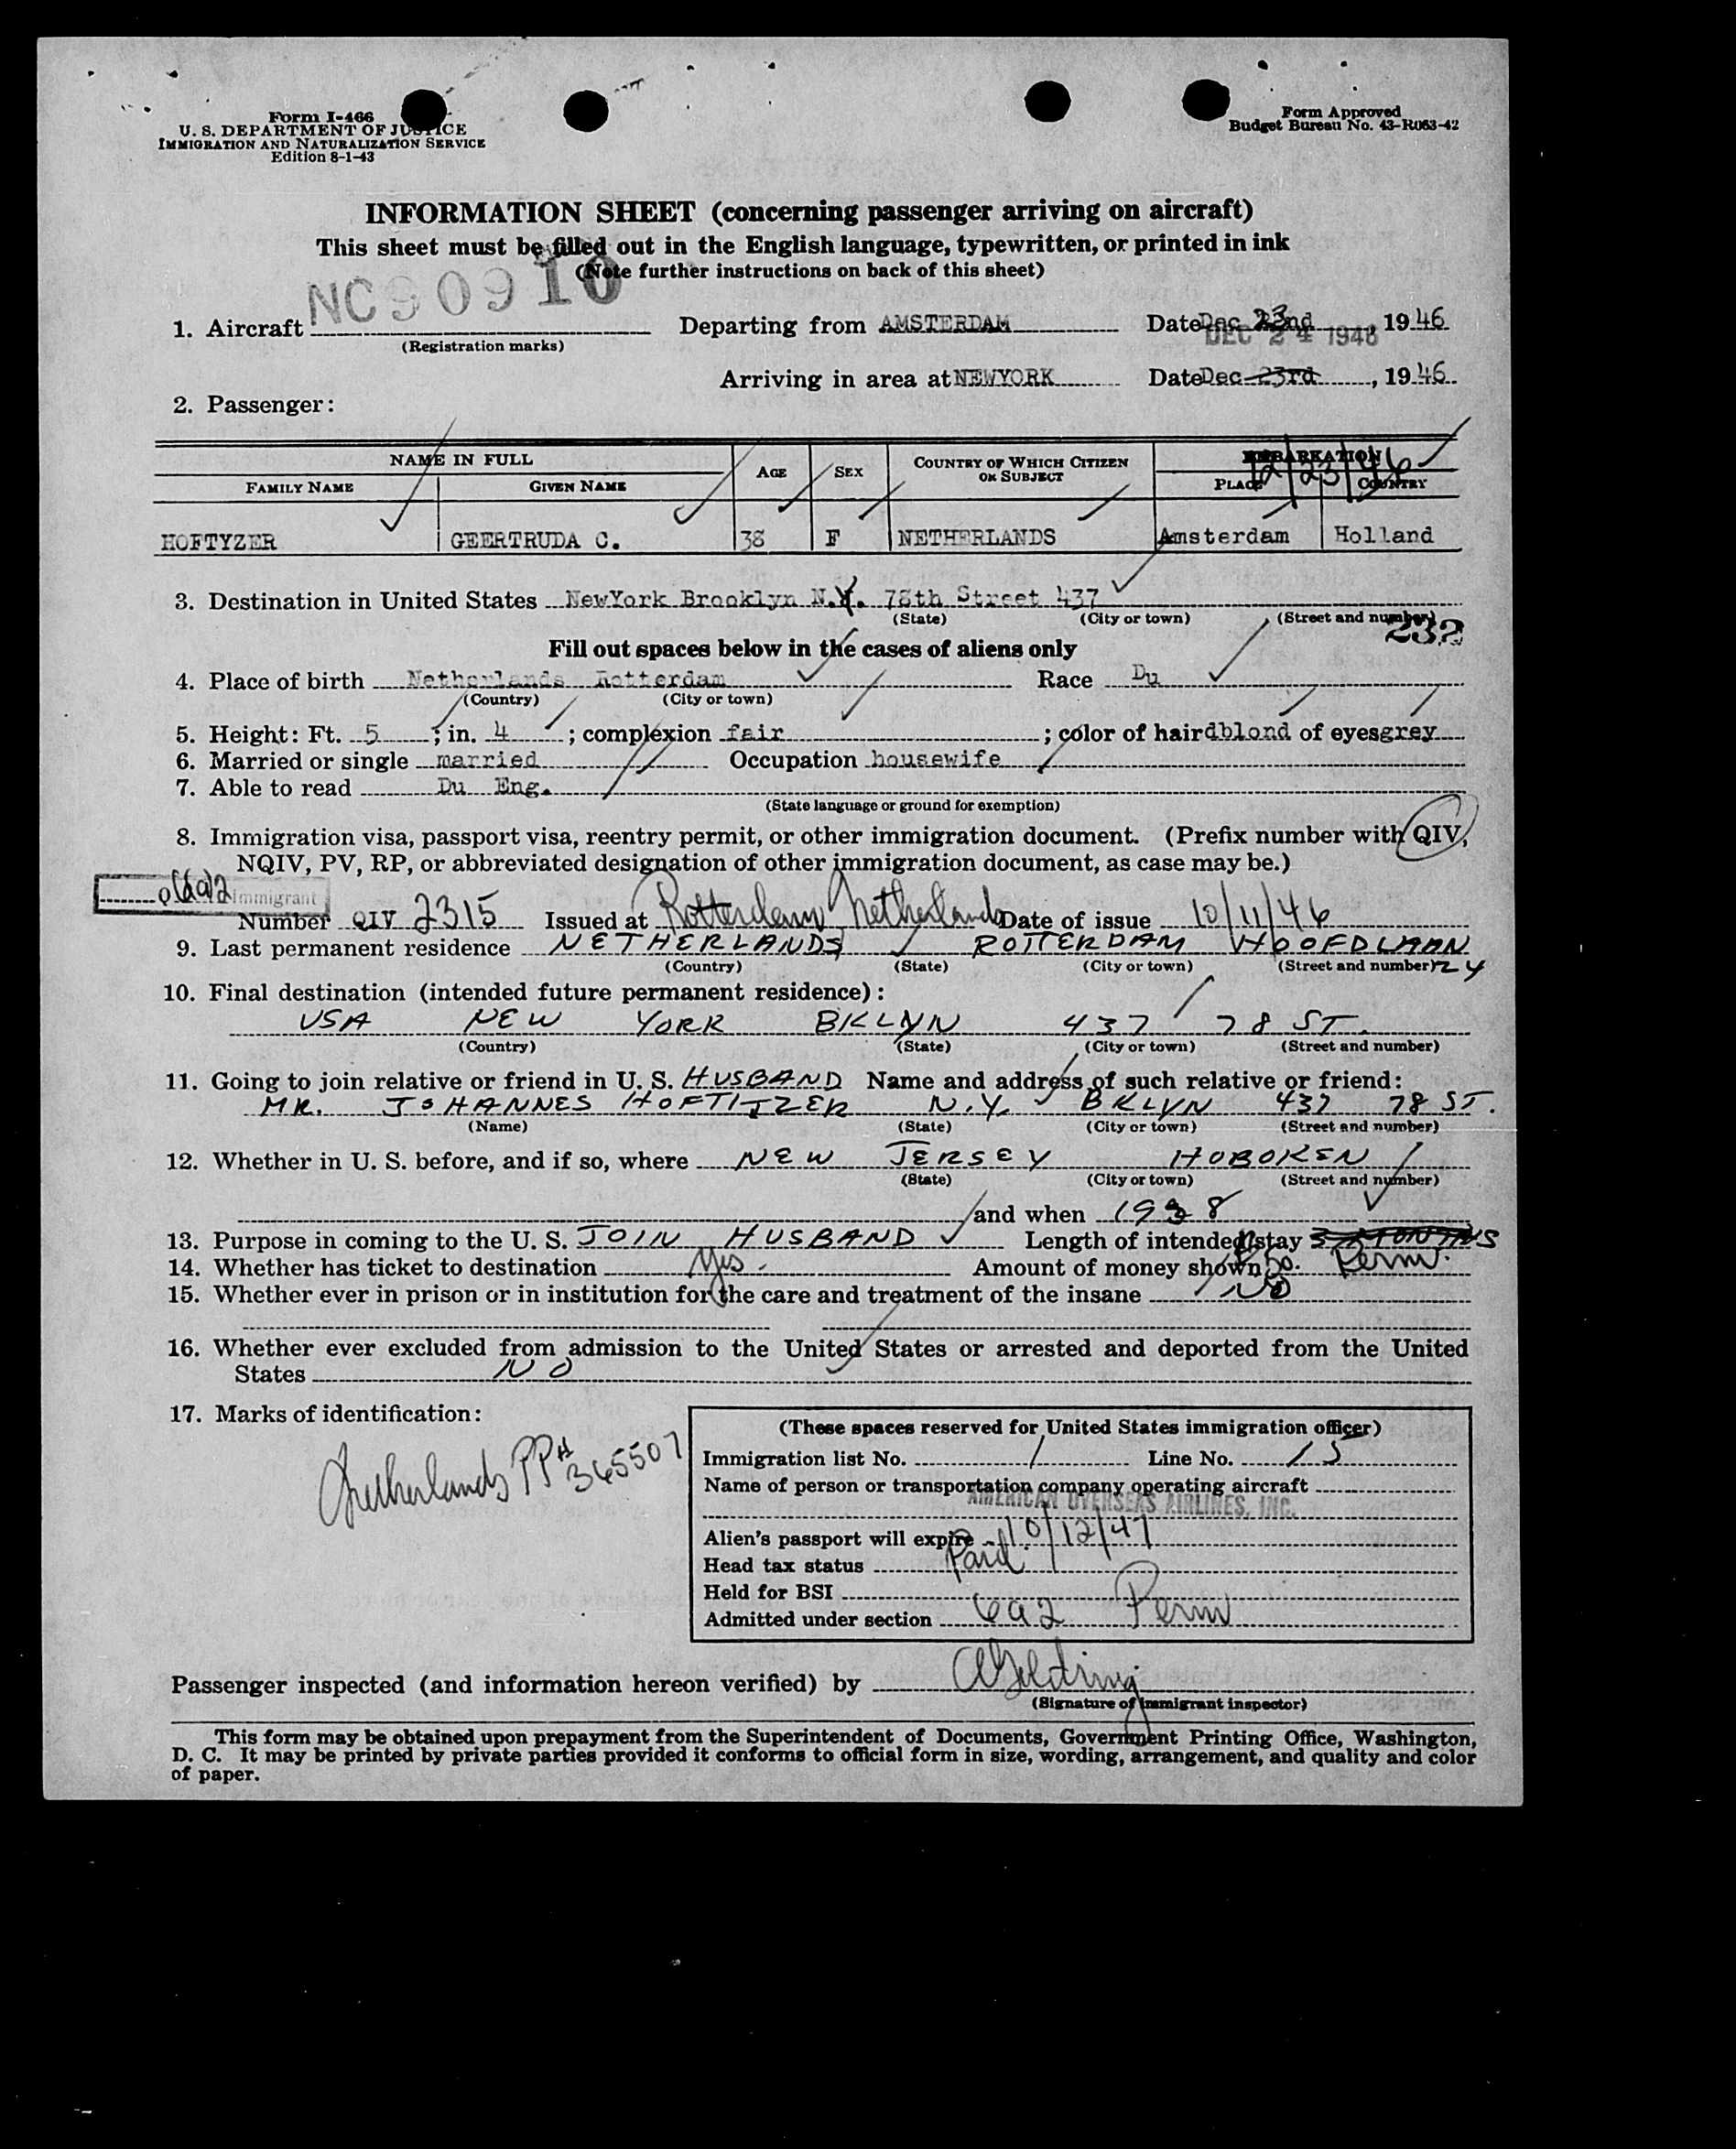 Form I-466
U. S. DEPARTMENT OF JUSTICE
IMMIGRATION AND NATURALIZATION SERVICE
Edition 8-1-43
Form Approved
Budget Bureau No. 43-R063-42
INFORMATION SHEET (concerning passenger arriving on aircraft)
This sheet must be filled out in the English language, typewritten, or printed in ink
(Note further instructions on back of this sheet)
NC90910
1. Aircraft Departing from AMSTERDAM Date Dec 23 , 19 46
(Registration marks) DEC 24 1946
Arriving in area at NEWYORK Date Dec 23rd , 19 46
2. Passenger:
NAME IN FULL AGE SEX COUNTRY OF WHICH CITIZEN OR SUBJECT EMBARKATION 12/23/46
FAMILY NAME GIVEN NAME PLACE COUNTRY
HOFTYZER GEERTRUDA C. 38 F NETHERLANDS Amsterdam Holland
3. Destination in United States NewYork Brooklyn N.Y. 78th Street 437
(State) (City or town) (Street and number)
232
Fill out spaces below in the cases of aliens only
4. Place of birth Netherlands Rotterdam Race Du
(Country) (City or town)
5. Height: Ft. 5 ; in. 4 ; complexion fair ; color of hair dblond of eyes grey
6. Married or single married Occupation housewife
7. Able to read Du Eng.
(State language or ground for exemption)
8. Immigration visa, passport visa, reentry permit, or other immigration document. (Prefix number with QIV,
NQIV, PV, RP, or abbreviated designation of other immigration document, as case may be.)
6(a)2 immigrant
Number QIV 2315 Issued at Rotterdam Netherlands Date of issue 10/11/46
9. Last permanent residence NETHERLANDS ROTTERDAM HOOFDLAAN
(Country) (State) (City or town) (Street and number) 24
10. Final destination (intended future permanent residence):
USA NEW YORK BKLYN 437 78 ST.
(Country) (State) (City or town) (Street and number)
11. Going to join relative or friend in U. S. HUSBAND Name and address of such relative or friend:
MR. JOHANNES HOFTIJZER N.Y. BKLYN 437 78 ST.
(Name) (State) (City or town) (Street and number)
12. Whether in U. S. before, and if so, where NEW JERSEY HOBOKEN
(State) (City or town) (Street and number)
and when 1938
13. Purpose in coming to the U. S. JOIN HUSBAND Length of intended stay 3 MONTHS
14. Whether has ticket to destination Yes. Amount of money shown 50. Perm.
15. Whether ever in prison or in institution for the care and treatment of the insane NO
16. Whether ever excluded from admission to the United States or arrested and deported from the United
States NO
17. Marks of identification:
Netherlands PP# 365507
(These spaces reserved for United States immigration officer)
Immigration list No. 1 Line No. 15
Name of person or transportation company operating aircraft
AMERICAN OVERSEAS AIRLINES, INC.
Alien's passport will expire 10/12/47
Head tax status Paid
Held for BSI
Admitted under section 6a2 Perm
Passenger inspected (and information hereon verified) by
(Signature of immigrant inspector)
This form may be obtained upon prepayment from the Superintendent of Documents, Government Printing Office, Washington,
D. C. It may be printed by private parties provided it conforms to official form in size, wording, arrangement, and quality and color
of paper.